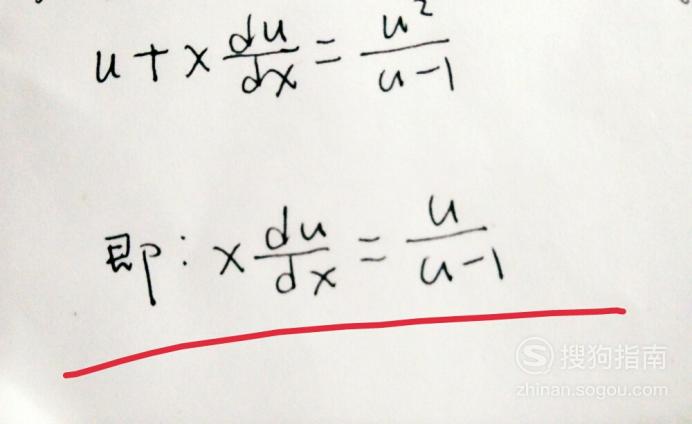 u + x du/dx = u²/(u-1)
即: x du/dx = u/(u-1)
搜狗指南
zhinan.sogou.com